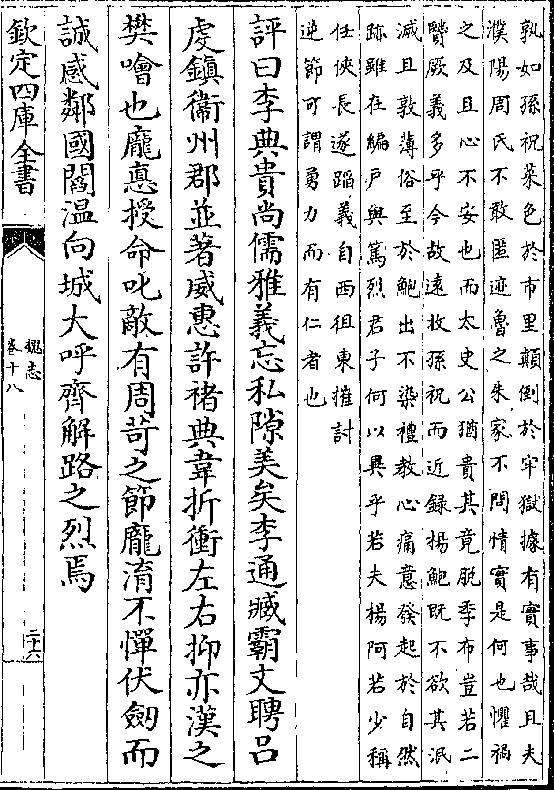 孰如孫祝菜色於市里顛倒於牢獄據有實事哉且夫
濮陽周氏不敢匿迹魯之朱家不問情實是何也懼禍
之及且心不安也而太史公猶貴其竟脫季布豈若二
賢厥義多乎今故遠收孫祝而近録揚鮑既不欲其泯
滅且敦薄俗至於鮑出不染禮教心痛意發起於自然
跡雖在編户與篤烈君子何以異乎若夫楊阿若少稱
任俠長遂蹈義自西徂東摧討
逆節可謂勇力而有仁者也
評曰李典貴尚儒雅義忘私隙美矣李通臧霸文聘吕
虔鎮衞州郡並著威惠許褚典韋折衝左右抑亦漢之
樊噲也龐悳授命叱敵有周苛之節龐淯不憚伏劒而
誠感鄰國閻温向城大呼齊解路之烈焉
欽定四庫全書
魏志
卷十八
二十六